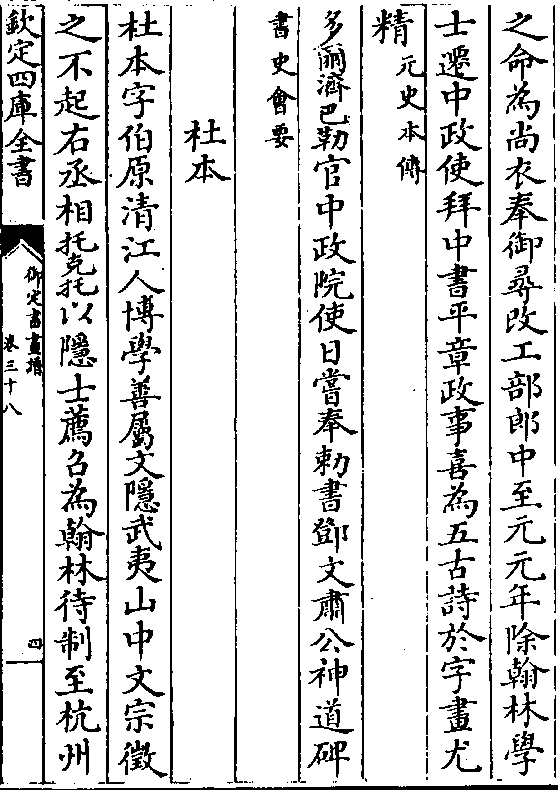 之命為尚衣奉御尋改工部郎中至元元年除翰林學
士遷中政使拜中書平章政事喜為五古詩於字畫尤
精元史本傳
多爾濟巴勒官中政院使日嘗奉勅書鄧文肅公神道碑
書史會要
杜本
杜本字伯原清江人博學善屬文隱武夷山中文宗徵
之不起右丞相托克托以隱士薦召為翰林待制至杭州
欽定四庫全書
御定書畫譜
卷三十八
四